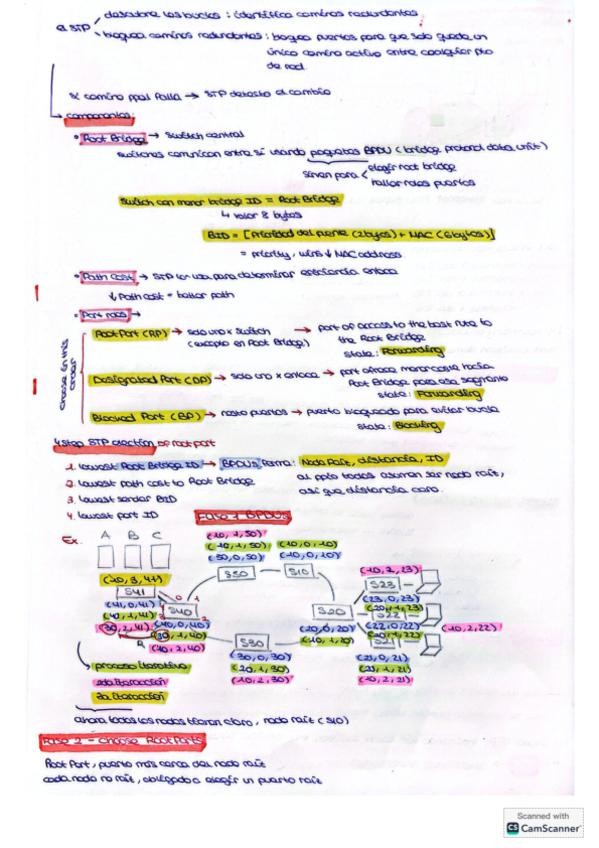 descubre los bucles : identifica caminos redundantes
el STP
bloquea caminos redundantes : bloquea puertos para que solo quede un
único camino activo entre cualquier pto
de red.
Si camino ppal falla → STP detecta el cambio
componentes:
• Root Bridge → Switch central
switches comunican entre sí usando paquetes BPDU (bridge protocol data unit)
sirven para
elegir root bridge
hallar roles puertos
Switch con menor bridge ID = Root Bridge
↳ valor 8 bytes
BID = [Prioridad del puente (2bytes) + MAC (6bytes)]
= priority, wins ↓ MAC address
• Path Cost → STP lo usa para determinar eficiencia enlace
↓ Path cost = better path
• Port roles →
choose in this
order
Root Port (RP) → solo uno x switch
(excepto en Root Bridge)
→ port of access to the best rute to
the Root Bridge
state: Forwarding
Designated Port (DP) → solo uno x enlace → port ofrece menor coste hacia
Root Bridge para ese segmento
state: Forwarding
Blocked Port (BP) → resto puertos → puerto bloqueado para evitar bucle
state: Blocking
4 step STP election of root port
1. lowest Root Bridge ID → BPDUs forma: Nodo Raíz, distancia, ID
2. lowest path cost to Root Bridge
al ppio todos asumen ser nodo raíz,
así que distancia cero.
3. lowest sender BID
4. lowest port ID
Fase 1 BPDUs
Ex.
A B C
(10, 1, 50)
(10, 1, 50) (10, 0, 10)
(50, 0, 50) (10, 0, 10)
S50
S10
(10, 3, 41)
S41
(41, 0, 41)
S40
(40, 0, 40)
(30, 2, 41)
(30, 1, 40)
(10, 2, 40)
S30
(30, 0, 30)
(20, 1, 30)
(10, 2, 30)
S20
(20, 0, 20)
(10, 1, 20)
(10, 2, 23)
S23
(23, 0, 23)
(20, 1, 23)
S22
(22, 0, 22)
(20, 1, 22)
(10, 2, 22)
(21, 0, 21)
(20, 1, 21)
(10, 2, 21)
proceso iterativo
2da iteracción
3a iteracción
ahora todos los nodos tienen claro, nodo raíz (S10)
Fase 2 - choose Root Ports
Root Port, puerto más cerca del nodo raíz
cada nodo no raíz, obligado a elegir un puerto raíz
Scanned with
CS CamScanner